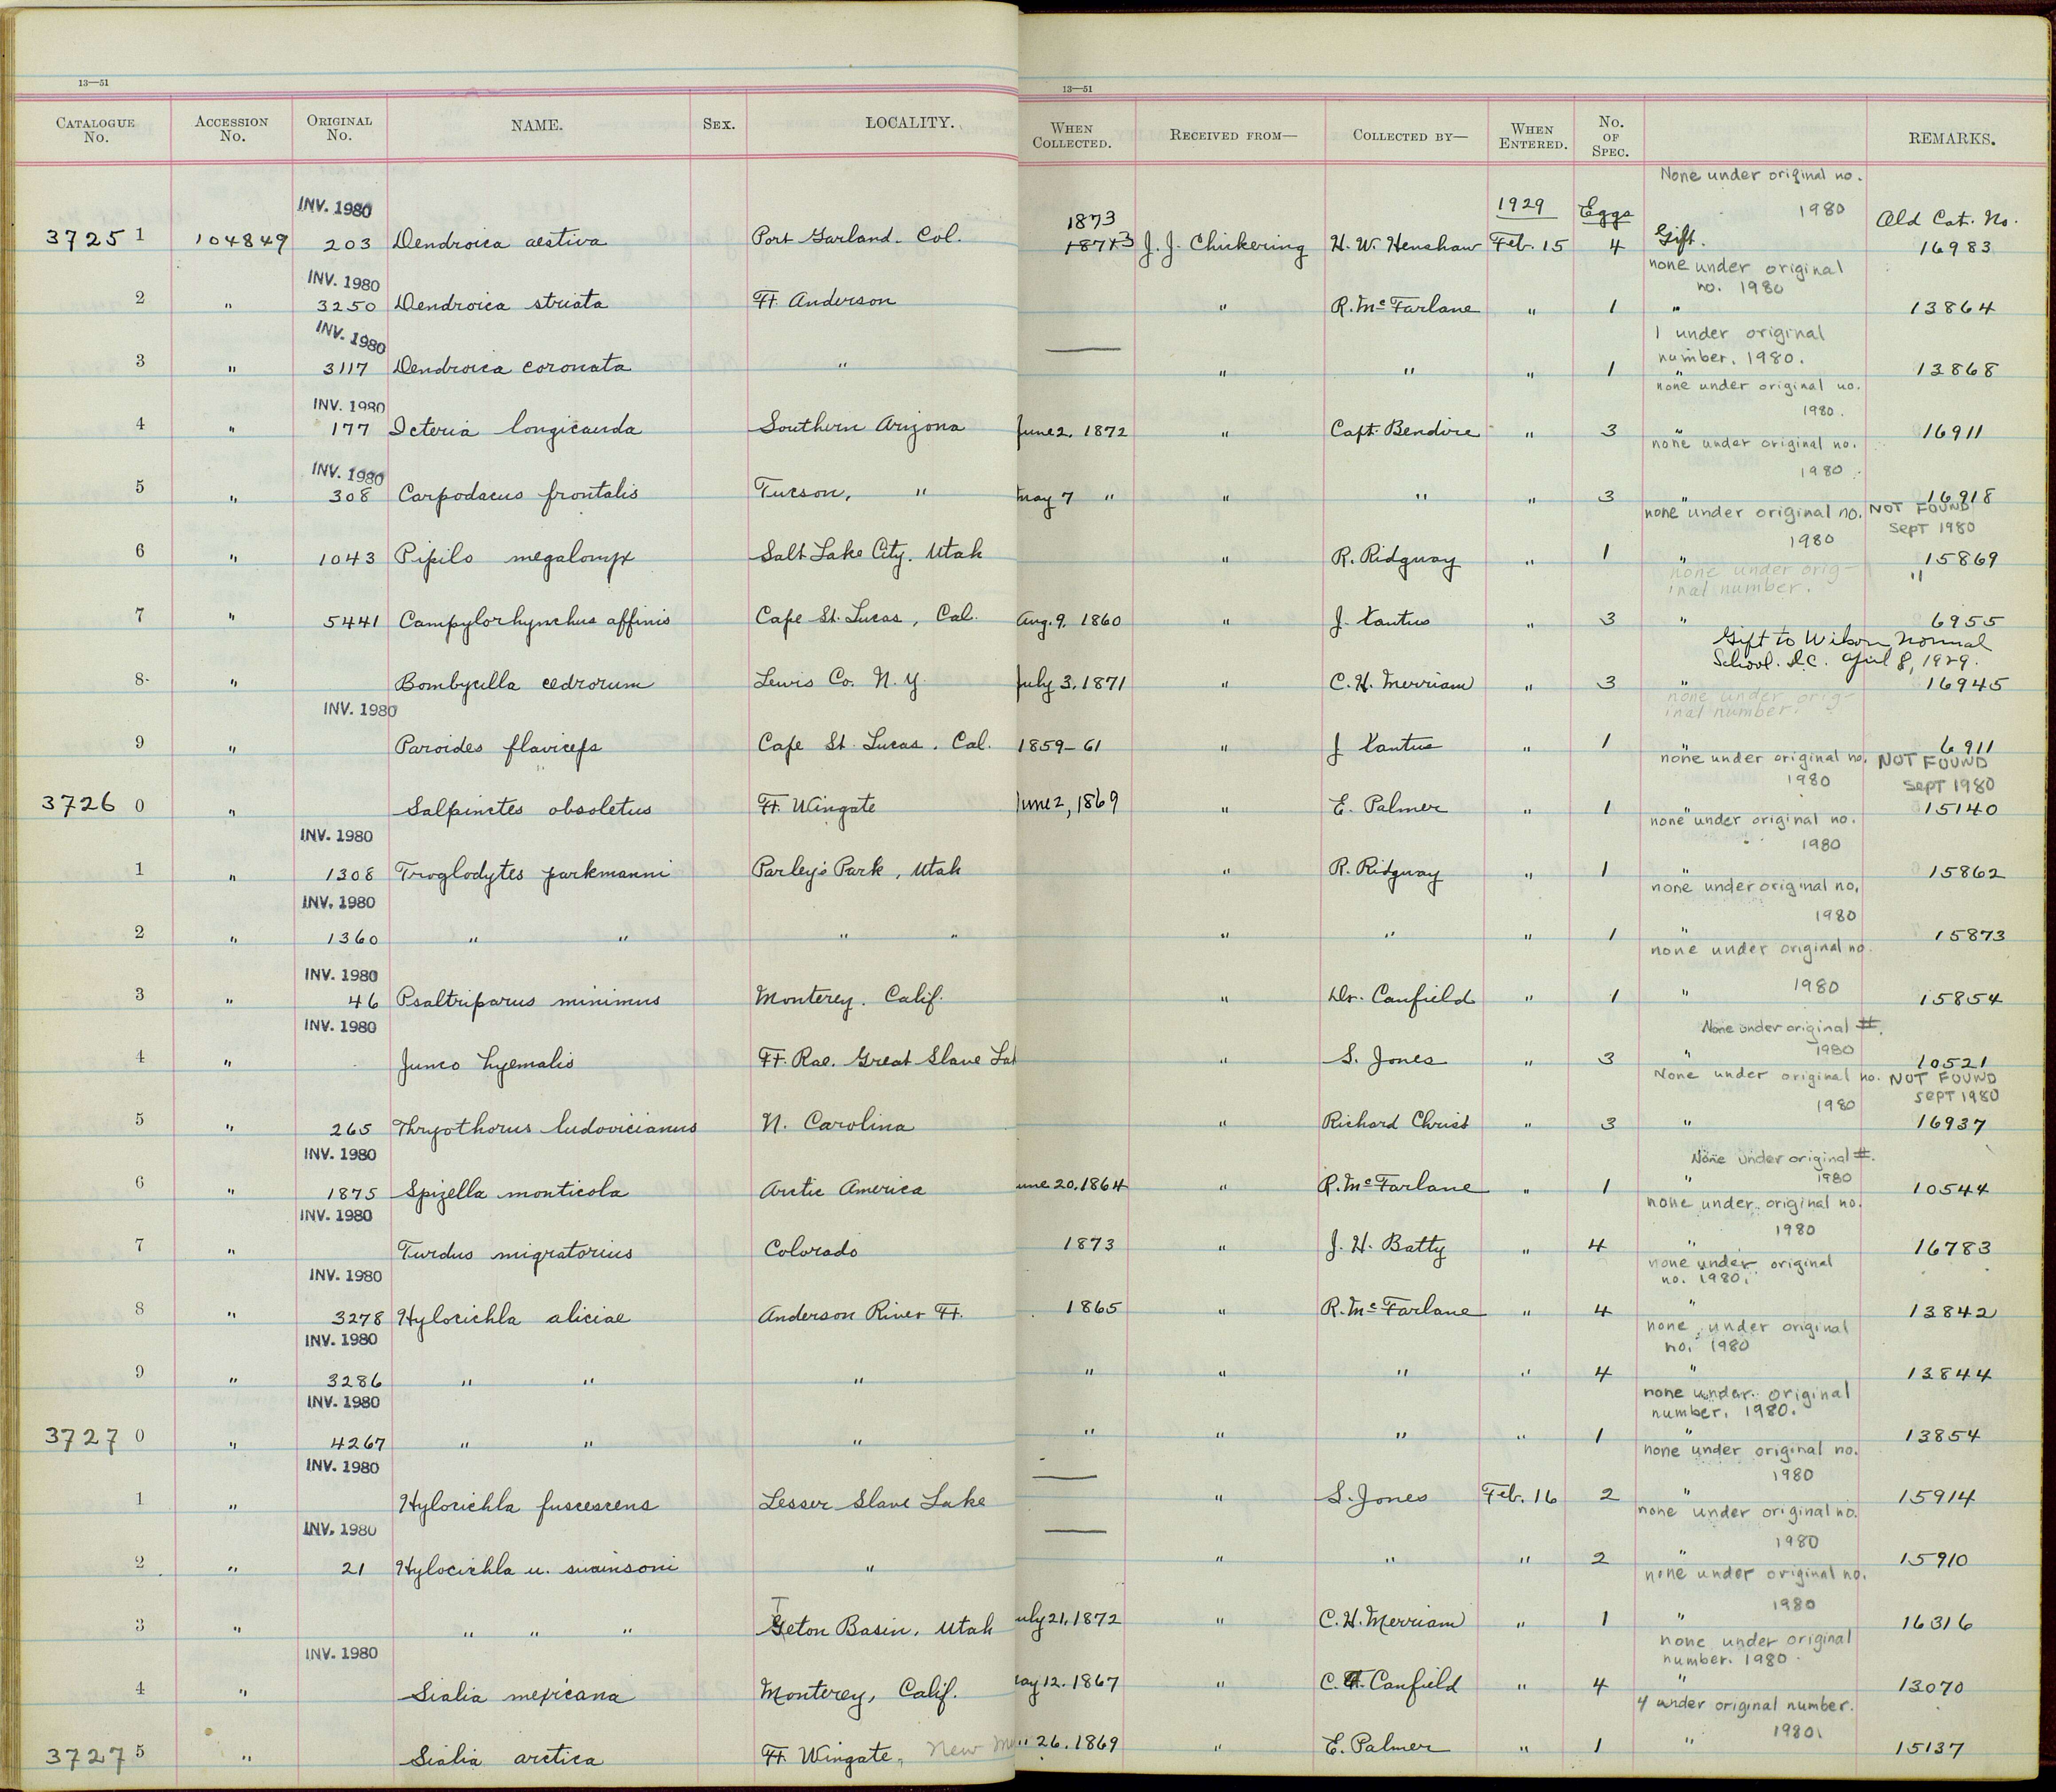 13—51
13—51
CATALOGUE No. ACCESSION No. ORIGINAL No. NAME. SEX. LOCALITY. WHEN COLLECTED. RECEIVED FROM— COLLECTED BY— WHEN ENTERED. No. OF SPEC. REMARKS.
None under original no.
INV. 1980 1873 1929 Eggs 1980 Old Cat. No.
3725 1 104849 203 Dendroica aestiva Port Garland. Col. 18743 J. J. Chickering H. W. Henshaw Feb. 15 4 Gift. 16983
INV. 1980 none under original no. 1980
2 " 3250 Dendroica striata Ft. Anderson " R. McFarlane " 1 " 13864
INV. 1980 1 under original number. 1980.
3 " 3117 Dendroica coronata " — " " " 1 " 13868
INV. 1980 none under original no. 1980.
4 " 177 Icteria longicauda Southern Arizona June 2, 1872 " Capt. Bendire " 3 " 16911
INV. 1980 none under original no. 1980
5 " 308 Carpodacus frontalis Tucson, " May 7 " " " " 3 " 16918
none under original no. 1980 NOT FOUND SEPT 1980
6 " 1043 Pipilo megalonyx Salt Lake City, Utah " R. Ridgway " 1 " 15869
none under original number. "
7 " 5441 Campylorhynchus affinis Cape St. Lucas, Cal. Aug. 9, 1860 " J. Xantus " 3 " 6955
Gift to Wilson Normal School. D.C. April 8, 1929.
8 " Bombycilla cedrorum Lewis Co. N.Y. July 3, 1871 " C. H. Merriam " 3 " 16945
INV. 1980 none under original number.
9 " Paroides flaviceps Cape St. Lucas, Cal. 1859-61 " J Xantus " 1 " 6911
none under original no. 1980 NOT FOUND SEPT 1980
3726 0 " Salpinctes obsoletus Ft. Wingate June 2, 1869 " E. Palmer " 1 " 15140
INV. 1980 none under original no. 1980
1 " 1308 Troglodytes parkmanni Parley's Park, Utah " R. Ridgway " 1 " 15862
INV. 1980 none under original no. 1980
2 " 1360 " " " " " " " 1 " 15873
INV. 1980 none under original no. 1980
3 " 46 Psaltriparus minimus Monterey, Calif. " Dr. Canfield " 1 " 15854
INV. 1980 None under original #. 1980
4 " Junco hyemalis Ft. Rae. Great Slave Lak " S. Jones " 3 " 10521
None under original no. 1980 NOT FOUND SEPT 1980
5 " 265 Thryothorus ludovicianus N. Carolina " Richard Christ " 3 " 16937
INV. 1980 None under original #. 1980
6 " 1875 Spizella monticola Arctic America une 20, 1864 " R. McFarlane " 1 " 10544
INV. 1980 none under original no. 1980
7 " Turdus migratorius Colorado 1873 " J. H. Batty " 4 " 16783
INV. 1980 none under original no. 1980.
8 " 3278 Hylocichla aliciae Anderson River Ft. 1865 " R. McFarlane " 4 " 13842
INV. 1980 none under original no. 1980
9 " 3286 " " " " " " " 4 " 13844
INV. 1980 none under original number. 1980.
3727 0 " 4267 " " " " " " " 1 " 13854
INV. 1980 none under original no. 1980
1 " Hylocichla fuscescens Lesser Slave Lake — " S. Jones Feb. 16 2 " 15914
INV. 1980 none under original no. 1980
2 " 21 Hylocichla u. swainsoni " — " " " 2 " 15910
none under original no. 1980
3 " " " " Teton Basin, Utah uly 21, 1872 " C. H. Merriam " 1 " 16316
INV. 1980 none under original number. 1980
4 " Sialia mexicana Monterey, Calif. ay 12. 1867 " C. A. Canfield " 4 " 13070
4 under original number. 1980.
3727 5 " Sialia arctica Ft. Wingate, New M " 26. 1869 " E. Palmer " 1 " 15137